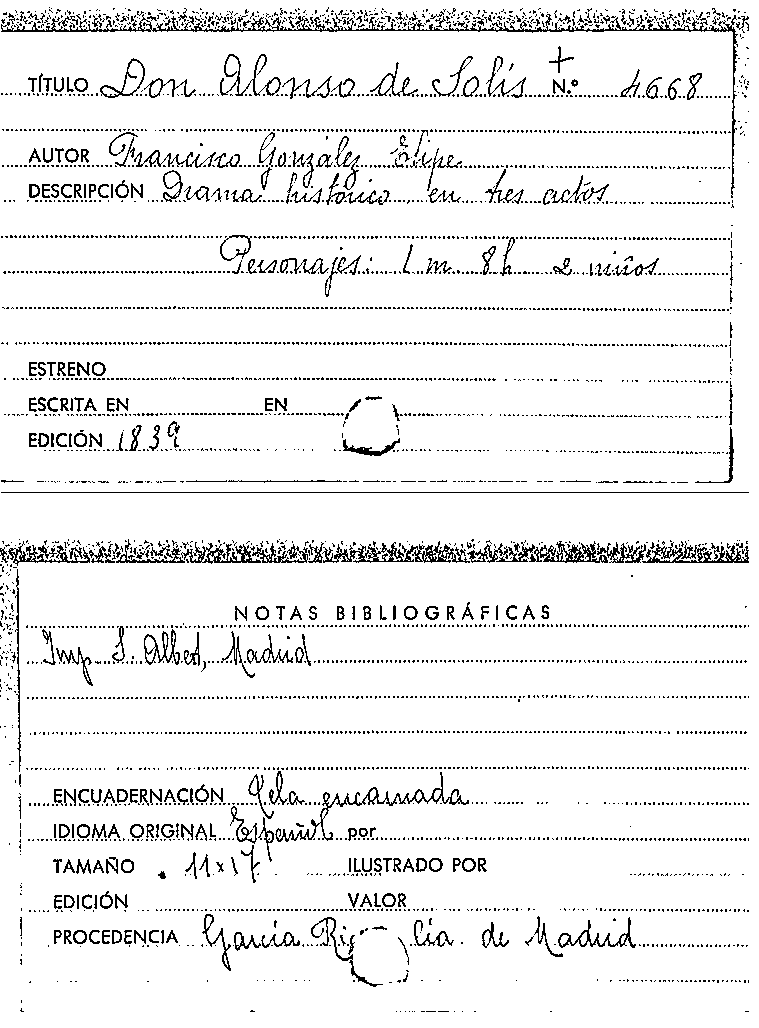 TÍTULO Don Alonso de Solís + N.º 4668
AUTOR Francisco González Elipe
DESCRIPCIÓN Drama histórico en tres actos
Personajes: 1 m. 8 h 2 niños
ESTRENO
ESCRITA EN EN
EDICIÓN 1839
NOTAS BIBLIOGRÁFICAS
Imp. S. Albert, Madrid
ENCUADERNACIÓN Tela encarnada
IDIOMA ORIGINAL Español por
TAMAÑO 11x17 ILUSTRADO POR
EDICIÓN VALOR
PROCEDENCIA García de Madrid